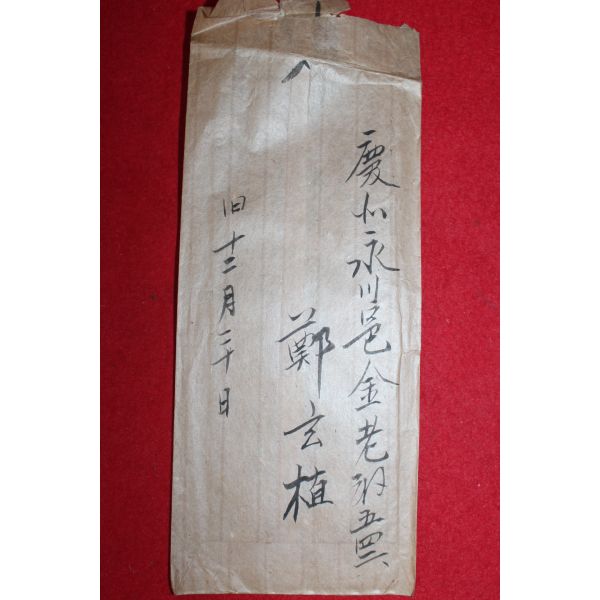 慶北永川邑金老洞五四
鄭玄植
旧十二月二十日